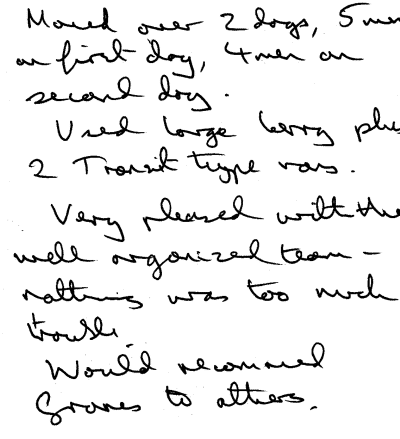 Moved over 2 days, 5 men
on first day, 4 men on
second day.
Used large lorry plus
2 Transit type vans.
Very pleased with the
well organized team –
nothing was too much
trouble.
Would recommend
Graves to others.